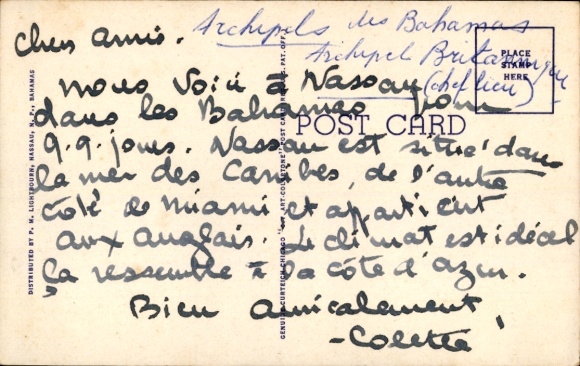 Archipels des Bahamas
Archipel Britannique
(chef lieu)
PLACE
STAMP
HERE
POST CARD
Chers amis.
Nous voici à Nassau pour
dans les Bahamas
9.9. jours. Nassau est situé dans
la mer des Caraïbes, de l'autre
côté de Miami et appartient
aux anglais. Le climat est idéal
ça ressemble à la côte d'azur.
Bien Amicalement,
- Colette
DISTRIBUTED BY P. M. LIGHTBOURN, NASSAU, N. P., BAHAMAS
GENUINE CURTEICH-CHICAGO "C.T. ART-COLORTONE" POST CARD PAT. OFF.